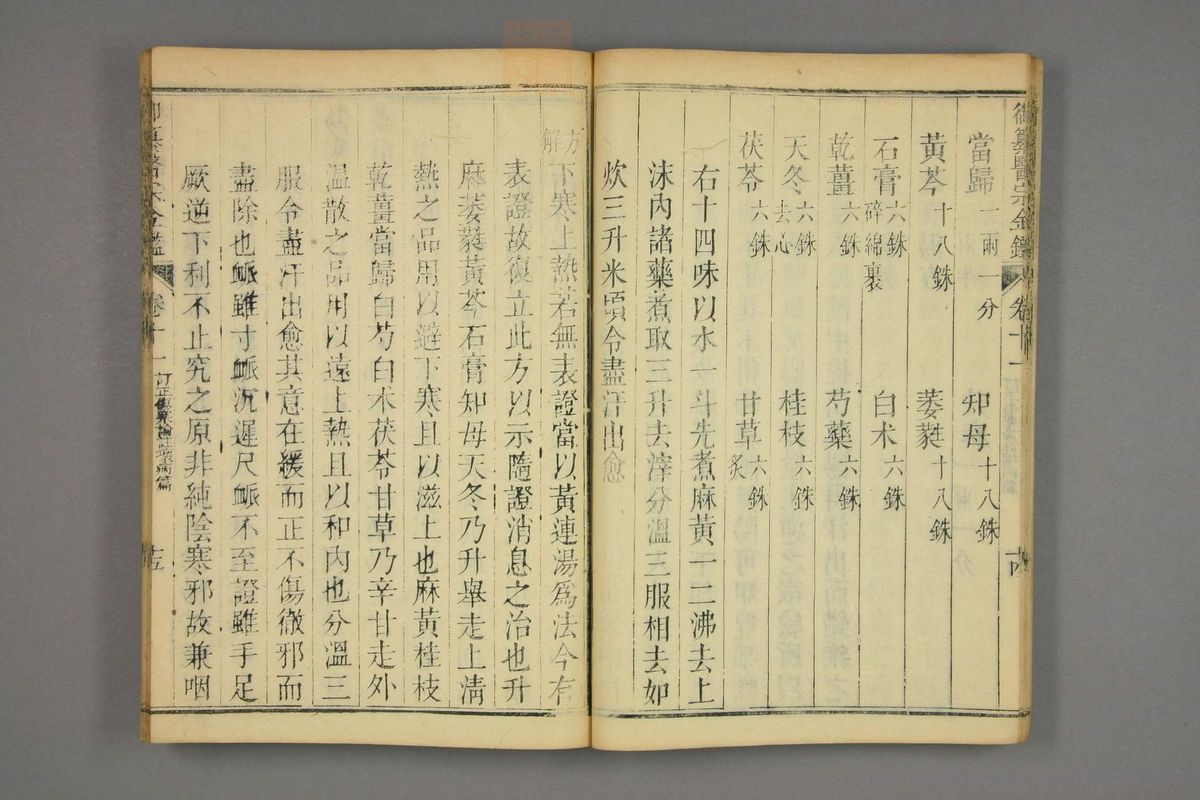 御纂醫宗金鑑
卷十一
當歸一兩一分 知母十八銖
黃芩十八銖 萎蕤十八銖
石膏六銖碎綿裹 白朮六銖
乾薑六銖 芍藥六銖
天冬六銖去心 桂枝六銖
茯苓六銖 甘草六銖炙
右十四味以水一斗先煮麻黃一二沸去上
沫內諸藥煮取三升去滓分溫三服相去如
炊三升米頃令盡汗出愈
方解
下寒上熱若無表證當以黃連湯爲法今有
表證故復立此方以示隨證消息之治也升
麻萎蕤黃芩石膏知母天冬乃升舉走上淸
熱之品用以避下寒且以滋上也麻黃桂枝
乾薑當歸白芍白朮茯苓甘草乃辛甘走外
溫散之品用以遠上熱且以和內也分溫三
服令盡汗出愈其意在緩而正不傷徹邪而
盡除也脈雖寸脈沉遲尺脈不至證雖手足
厥逆下利不止究之原非純陰寒邪故兼咽
御纂醫宗金鑑
卷十一
十五